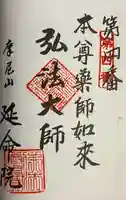 第四番
本尊藥師如來
弘法大師
摩尼山
延命院